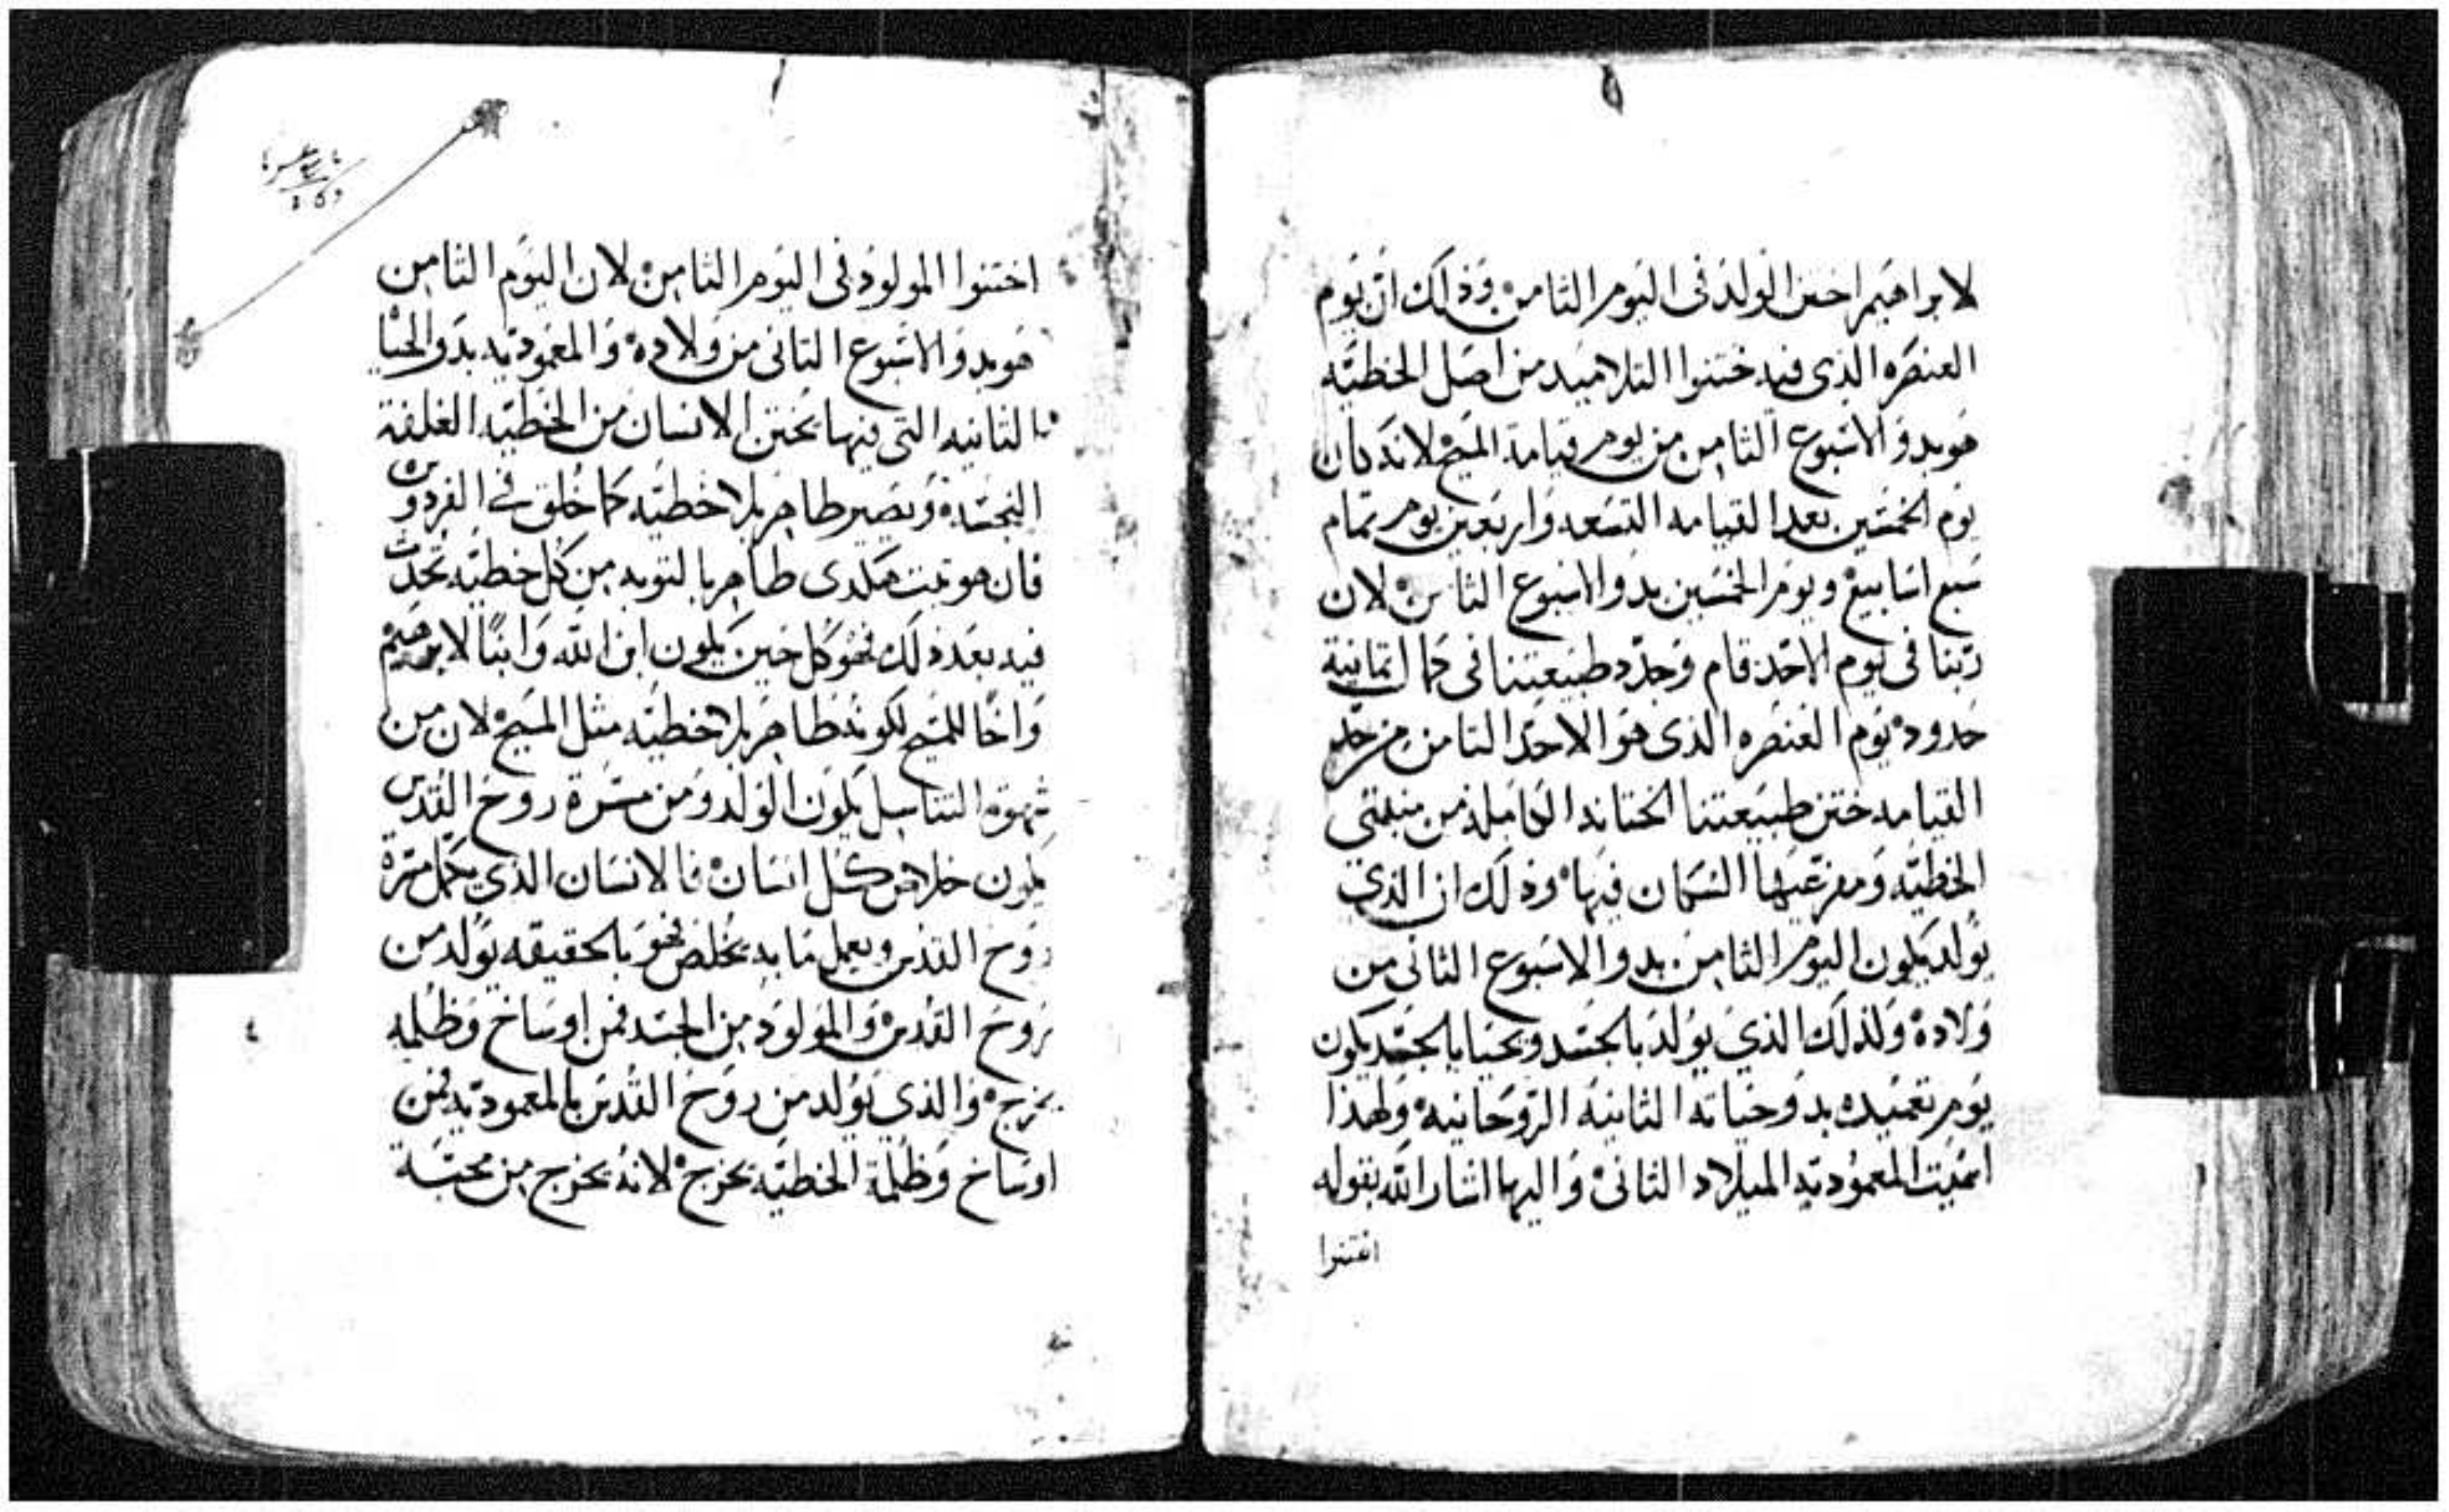 لابراهيم اختن الولد فى اليوم الثامن وذلك ان يوم
العنصره الذى فيه ختنوا التلاميد من اصل الخطيّه
هو بدو الاسبوع الثامن من يوم قيامة المسيح لانه كان
يوم الخمسين بعد القيامه التسعه واربعين يوم تمام
سبع اسابيع ويوم الخمسين بدو الاسبوع الثامن لان
ربّنا فى يوم الاحد قام وجدّد طبيعتنا فى كمال ثمانية
حدود يوم العنصره الذى هو الاحد الثامن من حد
القيامه ختن طبيعتنا الختانه الكامله من منبتى
الخطيّه ومفرعيها النسمان فيها وذلك ان الذي
يولد يكون اليوم الثامن بدو الاسبوع الثانى من
ولاده ولذلك الذي يولد بالجسد ويحيا بالجسد يكون
يوم تعميده بدو حياته الثانية الروحانيه ولهذا
اسميت المعموديه الميلاد الثانى واليها اشار الله بقوله
اختنوا
اختنوا المولود فى اليوم الثامن لان اليوم الثامن
هو بدو الاسبوع الثانى من ولاده والمعموديه بدو الحيا
الثانيه التى فيها يختن الانسان من الخطيّه الغلفة
النجسة ويصير طاهر بلا خطيّه كما خُلق في الفردوس
فان هو ثبت هكدى طاهر بالتوبه من كل خطيّه تحدث
فيه بعد ذلك فهو كل حين يكون ابن الله وابنًا لابرهيم
واخًا للمسيح لكونه طاهر بلا خطيّه مثل المسيح لان من
شهوة التناسل يكون الولد ومن مسرة روح القدس
يكون خلاص كل انسان فالانسان الذي يكمل مسرة
روح القدس ويعمل ما به يخلص فهو بالحقيقه يولد من
روح القدس والمولود من الجسد فمن اوساخ وظلمه
يخرج والذي يولد من روح القدس بالمعموديه فمن
اوساخ وظلمة الخطيّه يخرج لانه يخرج من محبّة